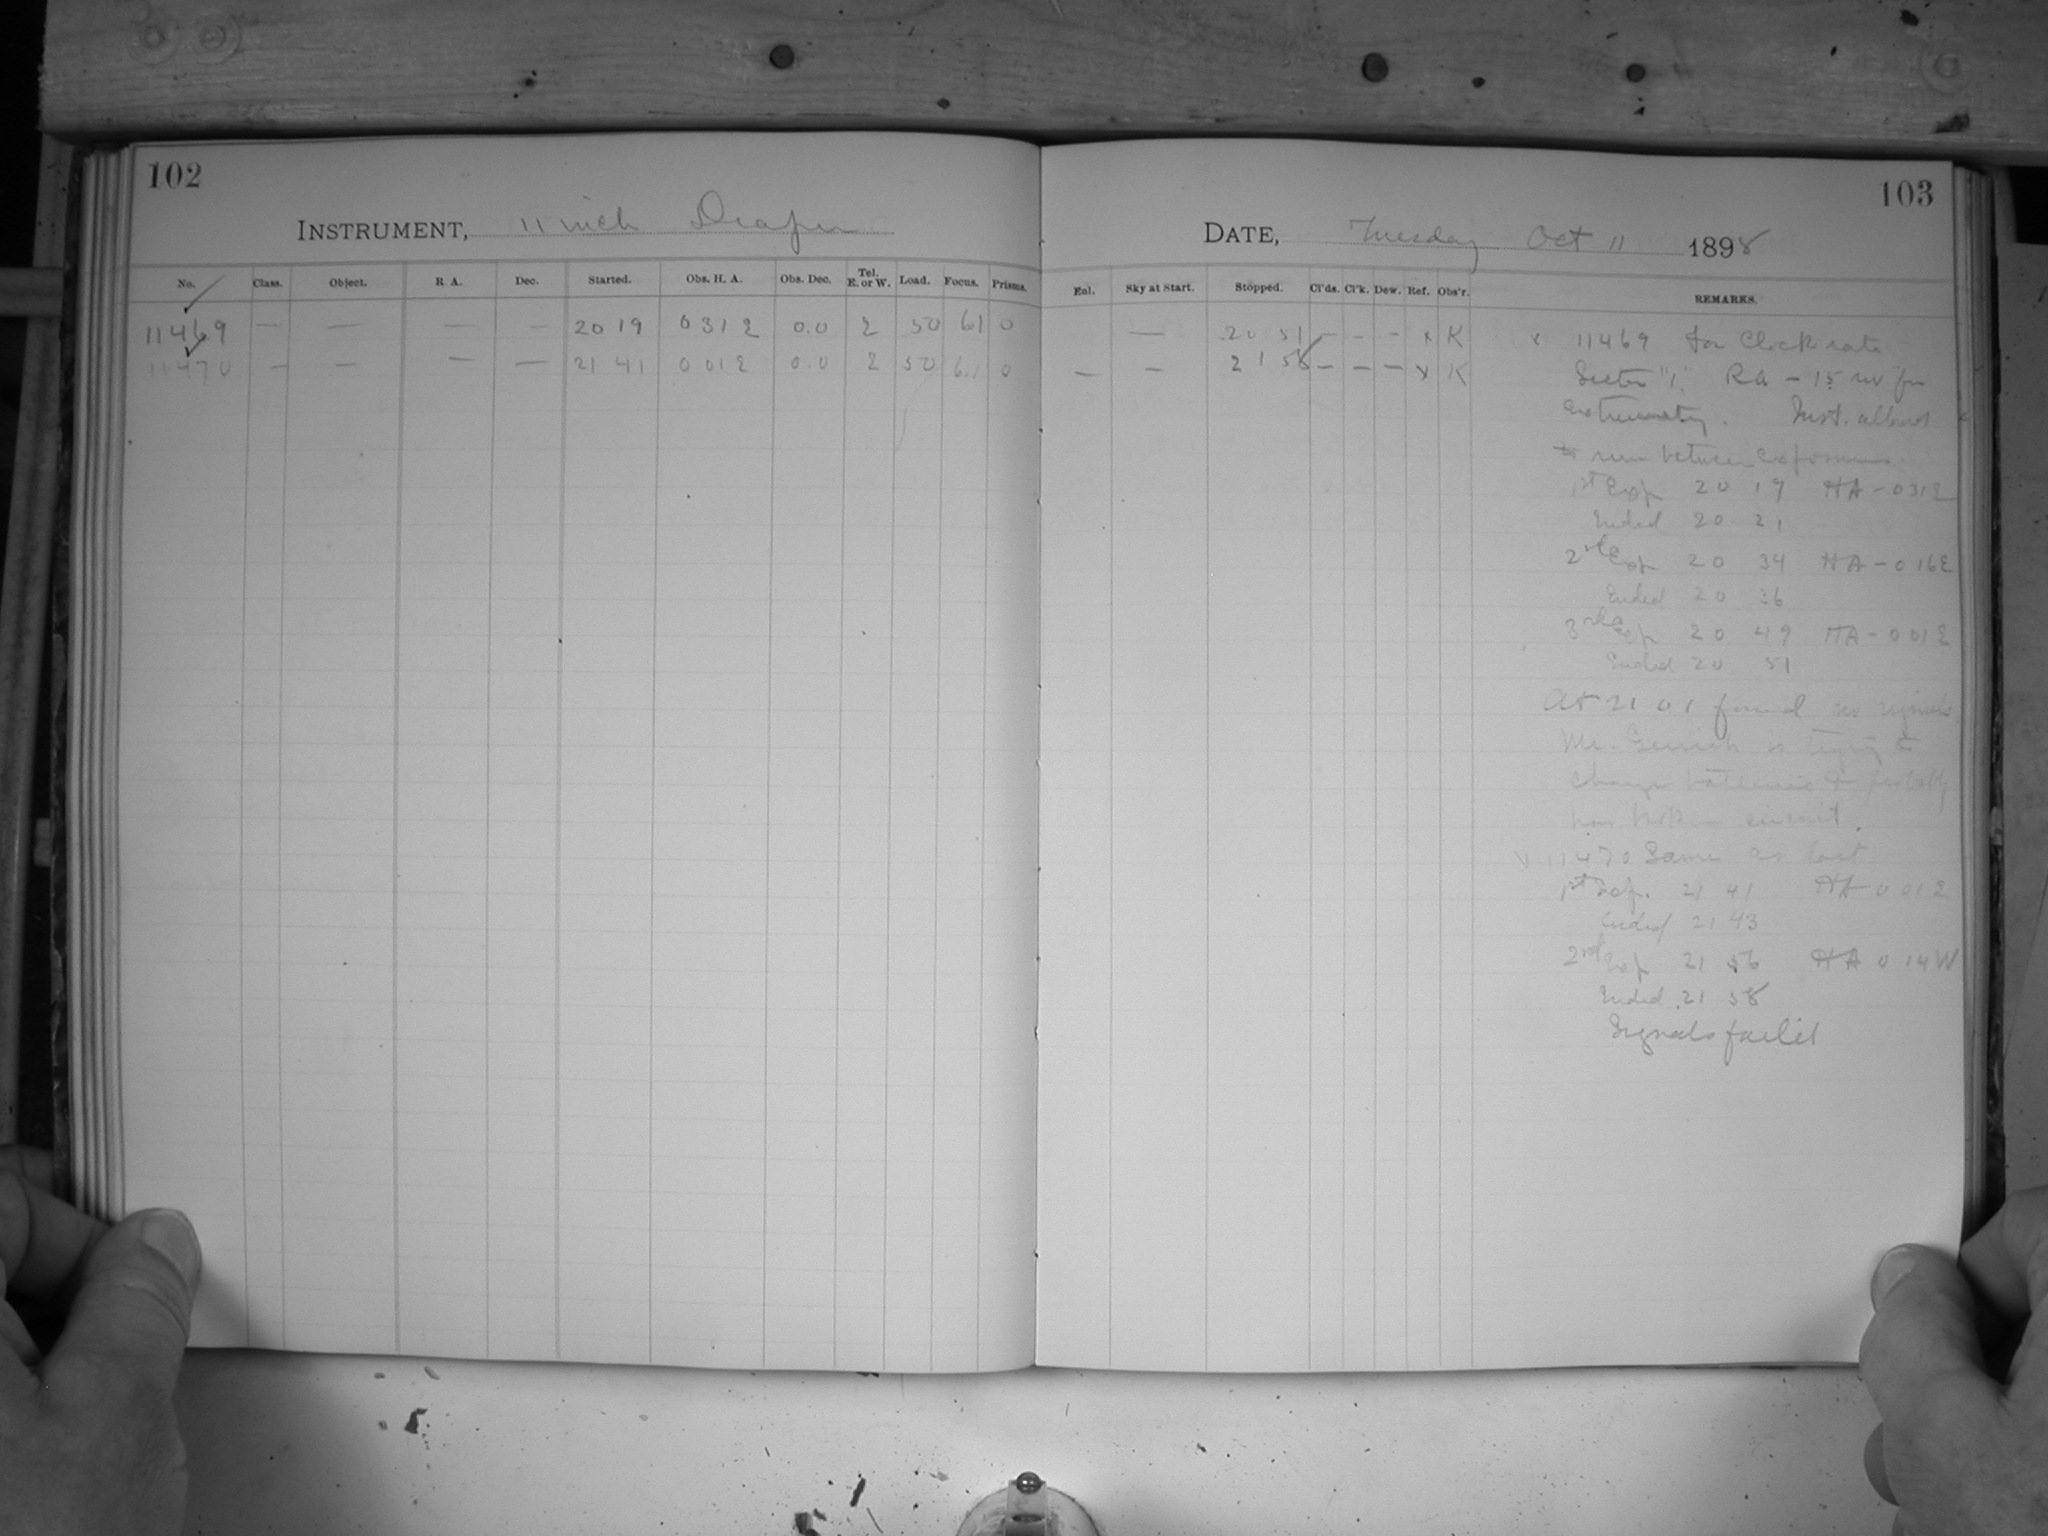 102
103
INSTRUMENT, 11 inch Draper
DATE, Tuesday Oct 11 1898
No. Class. Object. R A. Dec. Started. Obs. H. A. Obs. Dec. Tel. E. or W. Load. Focus. Prisms. Enl. Sky at Start. Stopped. Cl'ds. Cl'k. Dew. Ref. Obs'r. REMARKS.
11469 — — — — 20 19 0 31 E 0.0 E 50 61 0 — 20 51 — - - x K
11470 — — — — 21 41 0 01 E 0.0 E 50 6.1 0 — — 21 58 — — — x K
x 11469 for Clock rate
"1." RA – 15 for
Inst. allowed
to run between exposures.
1st Exp 20 19 HA – 0 31 E
Ended 20 21
2nd Exp 20 34 HA – 0 16 E
Ended 20 36
3rd Exp 20 49 HA – 0 01 E
Ended 20 51
At 21 01 found no signals
Mr. Gerrish is trying to
change batteries & probably
has broken circuit.
x 11470 Same as last
1st Exp. 21 41 HA 0 01 E
Ended 21 43
2nd Exp 21 56 HA 0 14 W
Ended 21 58
Signals failed